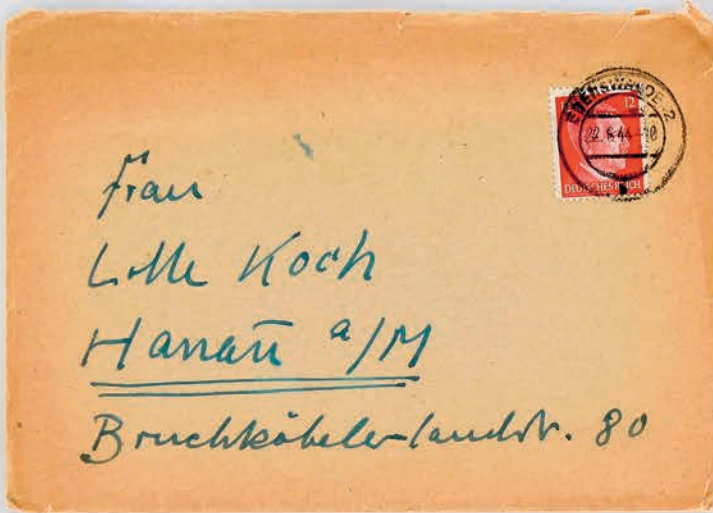 EBERSWALDE 2
22.6.44-10
12
DEUTSCHES REICH
Frau
Lotte Koch
Hanau a/M
Bruchköbelerlandstr. 80